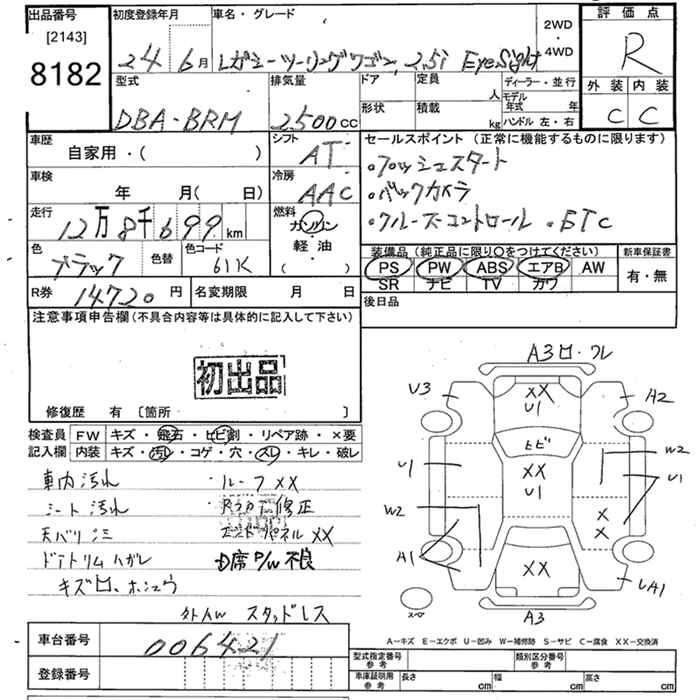 出品番号
[2143]
8182
初度登録年月
24年6月
車名・グレード
レガシーツーリングワゴン 2.5i EyeSight
2WD
・
4WD
評価点
R
外装 内装
C C
型式
DBA-BRM
排気量
2500cc
ドア 定員 人
形状 積載 kg
ディーラー・並行
モデル年式 年
ハンドル 左・右
車歴
自家用・( )
シフト
AT
車検
年 月(日)
冷房
AAC
走行
12万8千699km
燃料
ガソリン
軽油・
( )
色
ブラック
色替
色コード
61K
R券
14720円
名変期限 月 日
セールスポイント (正常に機能するものに限ります)
・プッシュスタート
・バックカメラ
・クルーズコントロール ・ETC
装備品 (純正品に限り○をつけてください)
PS PW ABS エアB AW
SR ナビ TV カワ
新車保証書
有・無
後日品
注意事項申告欄(不具合内容等は具体的に記入して下さい)
初出品
修復歴 有 [箇所 ]
検査員記入欄
FW キズ・飛石・ヒビ割・リペア跡・×要
内装 キズ・汚レ・コゲ・穴・スレ・キレ・破レ
車内汚れ
シート汚れ
天バリシミ
ドアトリムハガレ
キズ凹、ホシュウ
ルーフXX
エンドパネルXX
D席P/W不良
外AW スタッドレス
A3凹・ワレ
U3
A2
XX
U1
ヒビ
XX
U1
U1
W2
W2
U1
X
X
A1
XX
UA1
A3
スペア
A−キズ E−エクボ U−凹み W−補修跡 S−サビ C−腐食 XX−交換済
車台番号
006421
登録番号
型式指定番号
参考
類別区分番号
参考
車庫証明用
参考
長さ cm 幅 cm 高さ cm